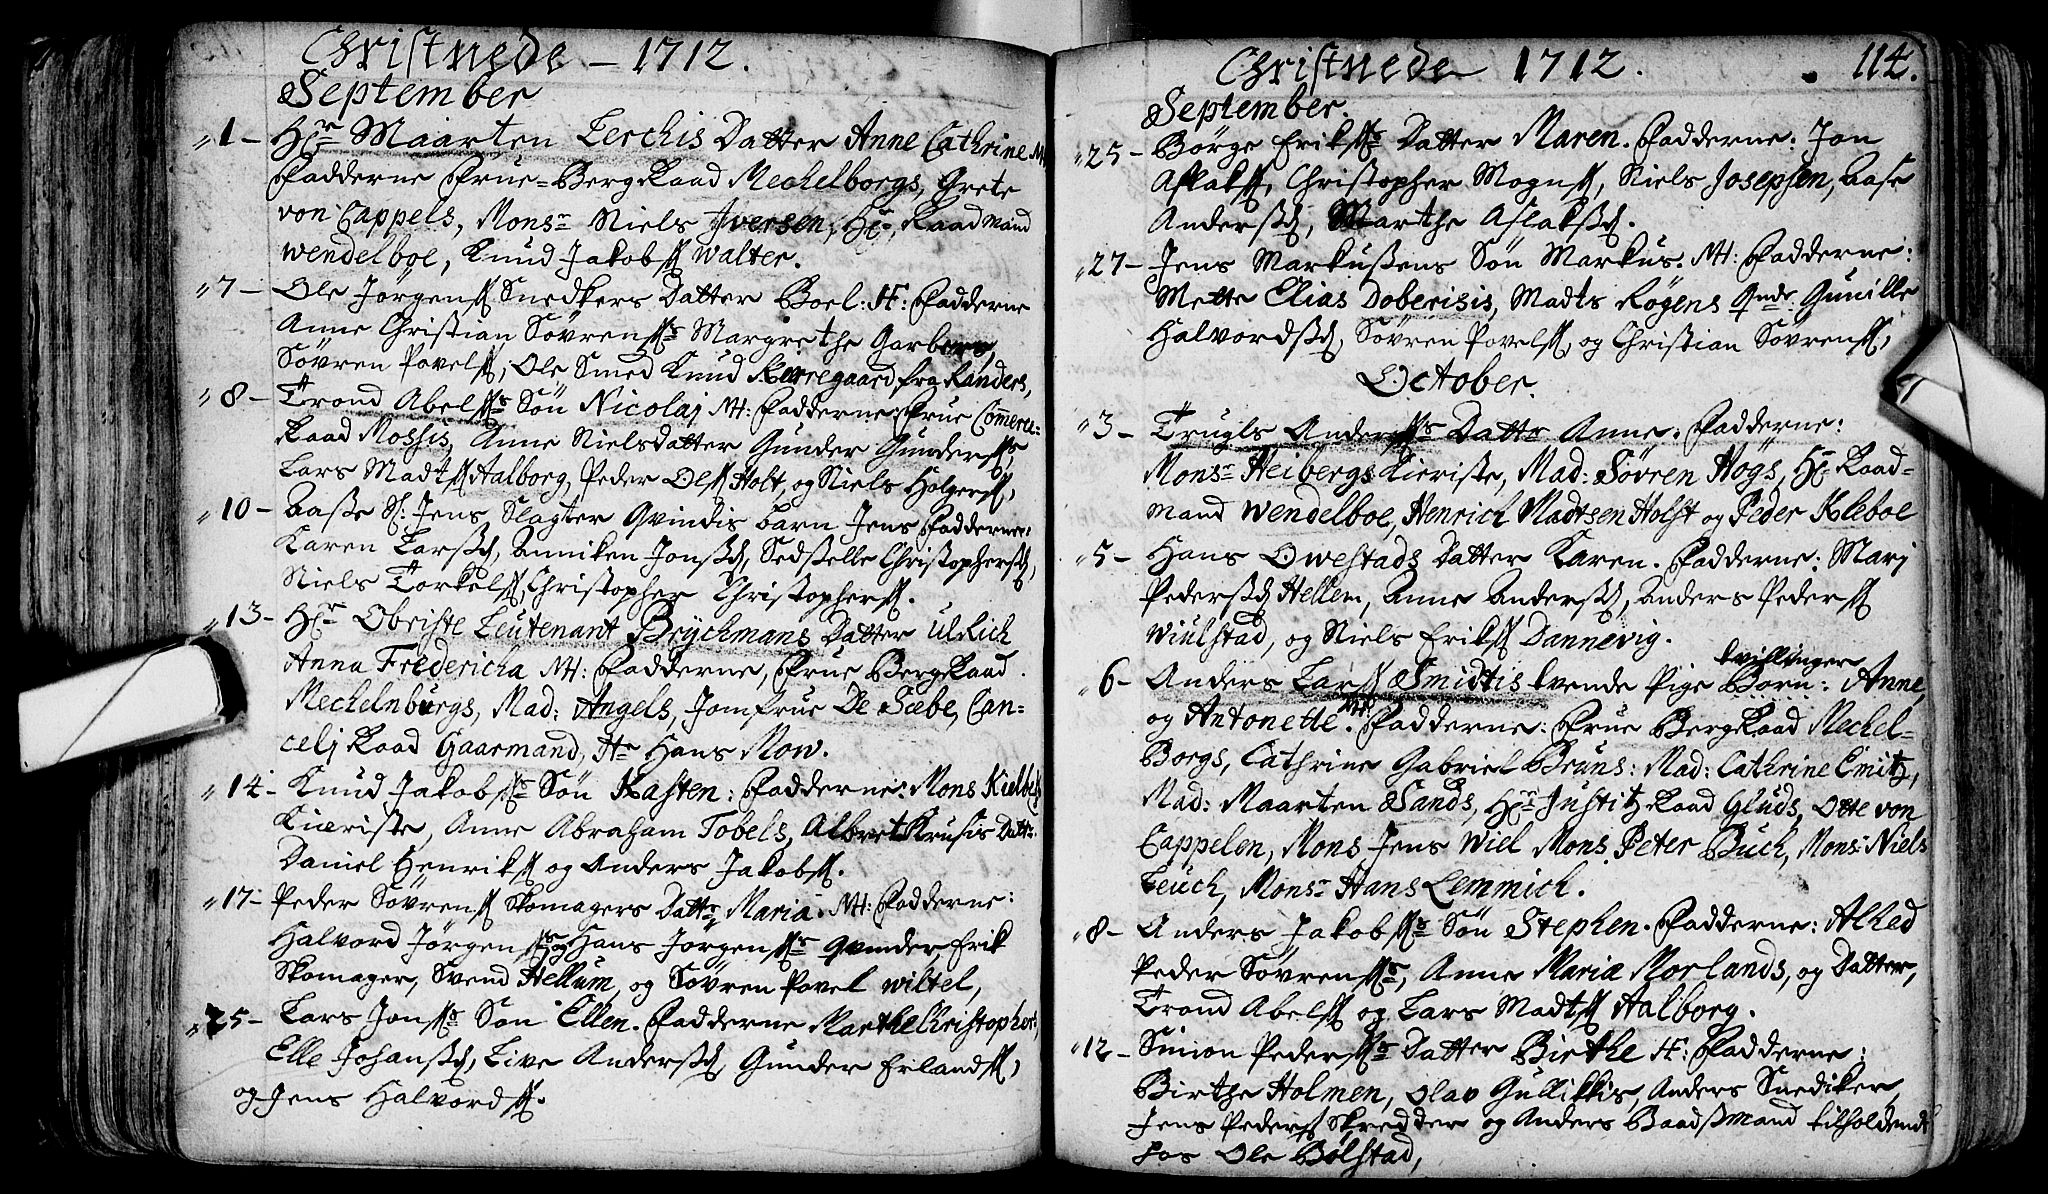 Christnede – 1712.
September
1 – Hr Maarten Lerchis Datter Anne Cathrine
Fadderne Frue Berg Raad Mechelborgs, Grete
von Cappels, Monsr Niels Iversen, Hr, Raadmand
Wendelboe, Knud Jakobs Walter.
7 – Ole Jörgens Snedkers Datter Boel: H: Fadderne
Anne Christian Sövrens Margrethe Garbers,
Sövren Povels, Ole Smed Knud Kerregaard fra Randers,
8 – Trond Abels Sön Nicolaj NH: Fadderne: Frue Comerce-
Raad Mossis, Anne Nielsdatter Gunder Gunders
Lars Madts Aalborg, Peder Ols Holt, og Niels Holgers,
10 – Aasse Sl: Jens Slagter Qvindis barn Jens Fadderne:
Karen Larsd, Anniken Jonsd, Sedsselle Christophersd,
Niels Torkels, Christopher Christophers.
13 – Hr Obriste Leutenant Brÿchmans Datter Ulrich
Anna Fredericha NH: Fadderne, Frue Berg Raad
Mechelnburgs, Mad: Angels, Jomfrue De Seebe, Can-
celj Raad Gaarmand, Hr Hans Mow.
14 – Knud Jakobs Sön Kasten: Fadderne: Mons Kielbergs
Kieriste, Anne Abraham Tobels, Albret Krusis Dattr.
Daniel Henriks og Anders Jakobs.
17 – Peder Sövrens Skomagers Dattr Maria. NH: Fadderne:
Halvord Jörgens og Hans Jörgens Qvinder, Erik
Skomager, Svend Hellum, og Sövren Povel Wiltel,
25 – Lars Jons Sön Ellen. Fadderne Marthe Christophers
Elle Johansd, Live Andersd, Gunder Erlands,
og Jens Halvords.
Christnede 1712. 114.
September.
25 – Börge Eriks Datter Maren. Fadderne: Jon
Aslaks, Christopher Mogns, Niels Josepsen, Aase
Andersd, Marthe Aslaksd.
27 – Jens Markussens Sön Markus. NH: Fadderne:
Mette Elias Doberisis, Madts Rögens Qnde Gunille
Halvordsd, Sövren Povels, og Christian Sövrens,
October.
3 – Trugls Anders Dattr Anne. Fadderne:
Monsr Heibergs Kieriste, Mad: Sövren Högs, Hr Raad-
mand Wendelboe, Henrich Madtsen Holst og Peder Kleboe
5 – Hans Owestads Datter Karen. Fadderne: Marj
Pedersd Hellem, Anne Andersd, Anders Peders
Wiulstad, og Niels Eriks Dannevig.
tvillinger
6 – Anders Lars Smidtis tvende Pige Börn: Anne,
og Antonette. NH: Fadderne: Frue Berg Raad Mechel-
Borgs, Cathrine Gabriel Bruns: Mad: Cathrine Emitz,
Mad: Maarten Sands, Hr Justitz Raad Gluds, Otte von
Cappelen, Mons Jens Wiel Mons Peter Buch, Mons: Niels
Leuch, Monsr Hans Lemmich.
8 – Anders Jakobs Sön Stephen. Fadderne: Alhed
Peder Sövrens, Anne Maria Morlands, og Datter,
Trond Abels og Lars Madts Aalborg.
12 – Simon Peders Datter Birthe H: Fadderne:
Birthe Holmen, Olav Gullikkis, Anders Snediker,
Jens Peders Skredder og Anders Baadsmand tilholdende
hos Ole Bölstad,